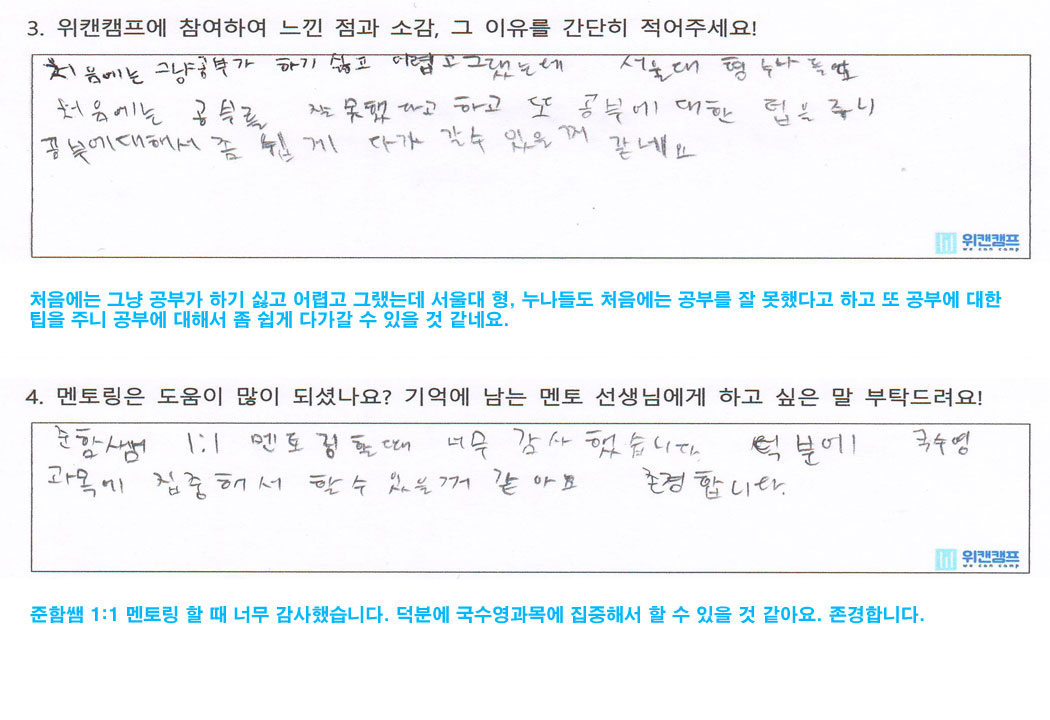 3. 위캔캠프에 참여하여 느낀 점과 소감, 그 이유를 간단히 적어주세요!
처음에는 그냥공부가 하기 싫고 어렵고그랬는데 서울대 형 누나들도
처음에는 공부를 잘못했다고 하고 또 공부에 대한 팁을 주니
공부에대해서 좀 쉽게 다가갈수 있을꺼 같네요
위캔캠프
we can camp
처음에는 그냥 공부가 하기 싫고 어렵고 그랬는데 서울대 형, 누나들도 처음에는 공부를 잘 못했다고 하고 또 공부에 대한
팁을 주니 공부에 대해서 좀 쉽게 다가갈 수 있을 것 같네요.
4. 멘토링은 도움이 많이 되셨나요? 기억에 남는 멘토 선생님에게 하고 싶은 말 부탁드려요!
준함쌤 1:1 멘토링할때 너무 감사했습니다. 덕분에 국수영
과목에 집중해서 할수 있을꺼 같아요 존경합니다.
위캔캠프
we can camp
준함쌤 1:1 멘토링 할 때 너무 감사했습니다. 덕분에 국수영과목에 집중해서 할 수 있을 것 같아요. 존경합니다.